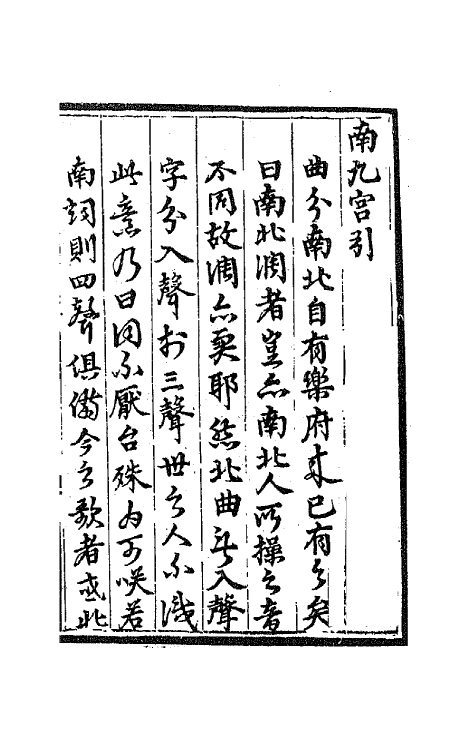 南九宫引
曲分南北自有樂府来已有之矣
曰南北調者豈亦南北人所操之音
不同故調亦異耶然北曲無入聲
字分入聲於三聲世之人不識
此意乃曰凹不厭台殊為可咲若
南詞則四聲俱備今之歌者或北